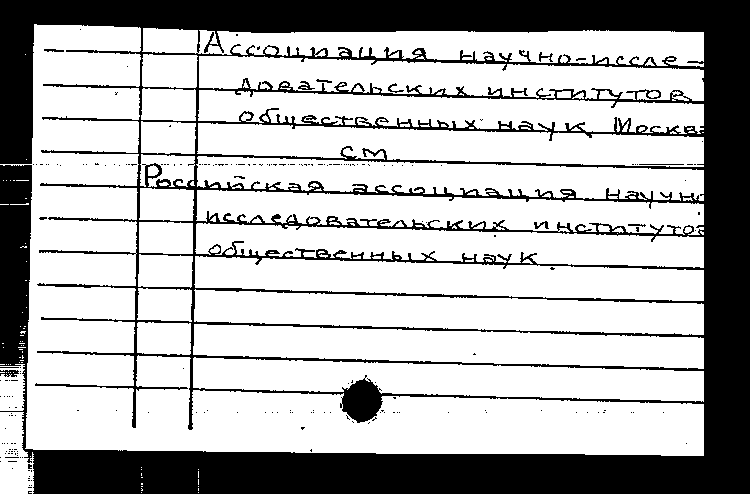 Ассоциация научно-иссле-
довательских институтов
общественных наук Москва
см
Российская ассоциация научно
исследовательских институтов
общественных наук.